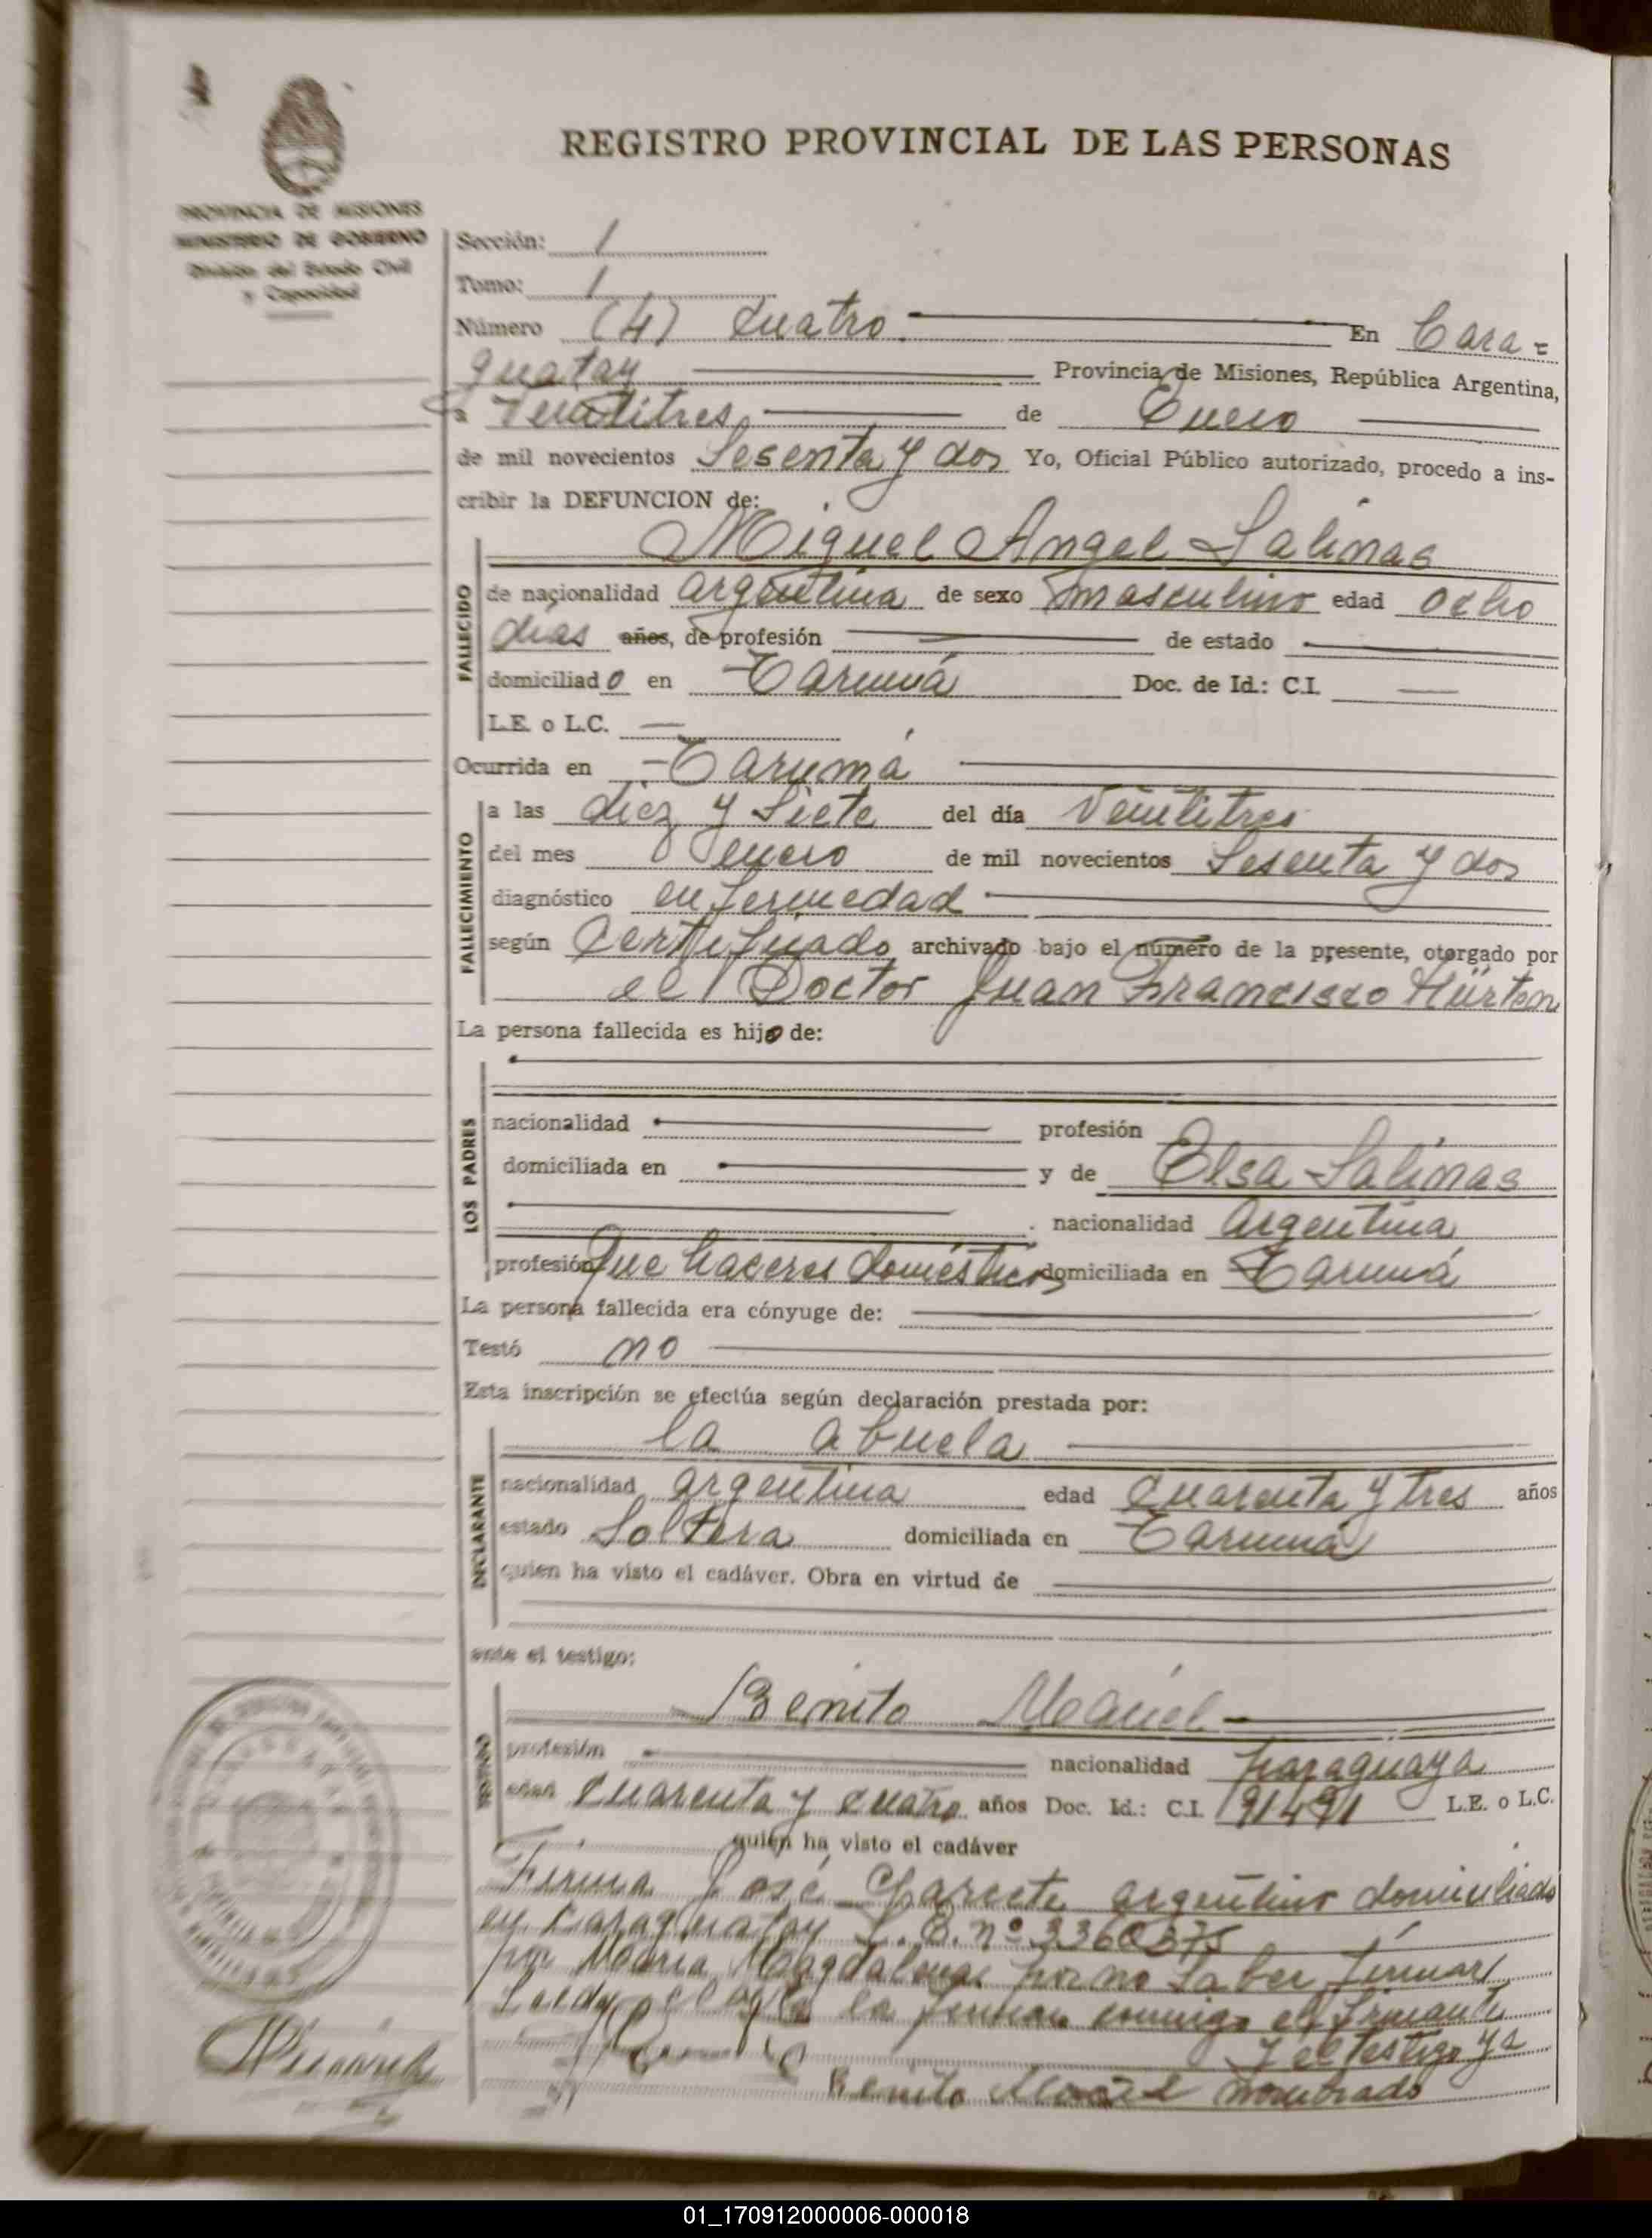 REGISTRO PROVINCIAL DE LAS PERSONAS
PROVINCIA DE MISIONES
MINISTERIO DE GOBIERNO
División del Estado Civil
y Capacidad
Sección: 1
Tomo: 1
Número (4) Cuatro En Cara=
guatay Provincia de Misiones, República Argentina,
a Veintitres de Enero
de mil novecientos Sesenta y dos Yo, Oficial Público autorizado, procedo a ins-
cribir la DEFUNCION de:
Miguel Angel Salinas
FALLECIDO
de nacionalidad argentina de sexo masculino edad ocho
días años, de profesión de estado
domiciliado en Tarumá Doc. de Id.: C.I.
L.E. o L.C.
Ocurrida en Tarumá
FALLECIMIENTO
a las diez y siete del día Veintitres
del mes enero de mil novecientos Sesenta y dos
diagnóstico enfermedad
según Certificado archivado bajo el número de la presente, otorgado por
el Doctor Juan Francisco Hürten
La persona fallecida es hijo de:
LOS PADRES
nacionalidad profesión
domiciliada en y de Elsa Salinas
nacionalidad Argentina
profesión Que haceres domésticos domiciliada en Tarumá
La persona fallecida era cónyuge de:
Testó no
Esta inscripción se efectúa según declaración prestada por:
la abuela
DECLARANTE
nacionalidad argentina edad Cuarenta y tres años
estado Soltera domiciliada en Tarumá
quien ha visto el cadáver. Obra en virtud de
ante el testigo:
Benito
TESTIGO
profesión nacionalidad paraguaya
edad Cuarenta y cuatro años Doc. Id.: C.I. 191491 L.E. o L.C.
quien ha visto el cadáver
Firma José argentino domiciliado
en Caraguatay L. E. nº 3360375
por María Magdalena por no saber firmar
Leída el acta la firman conmigo el firmante
y el testigo ya
Benito nombrado
01_170912000006-000018